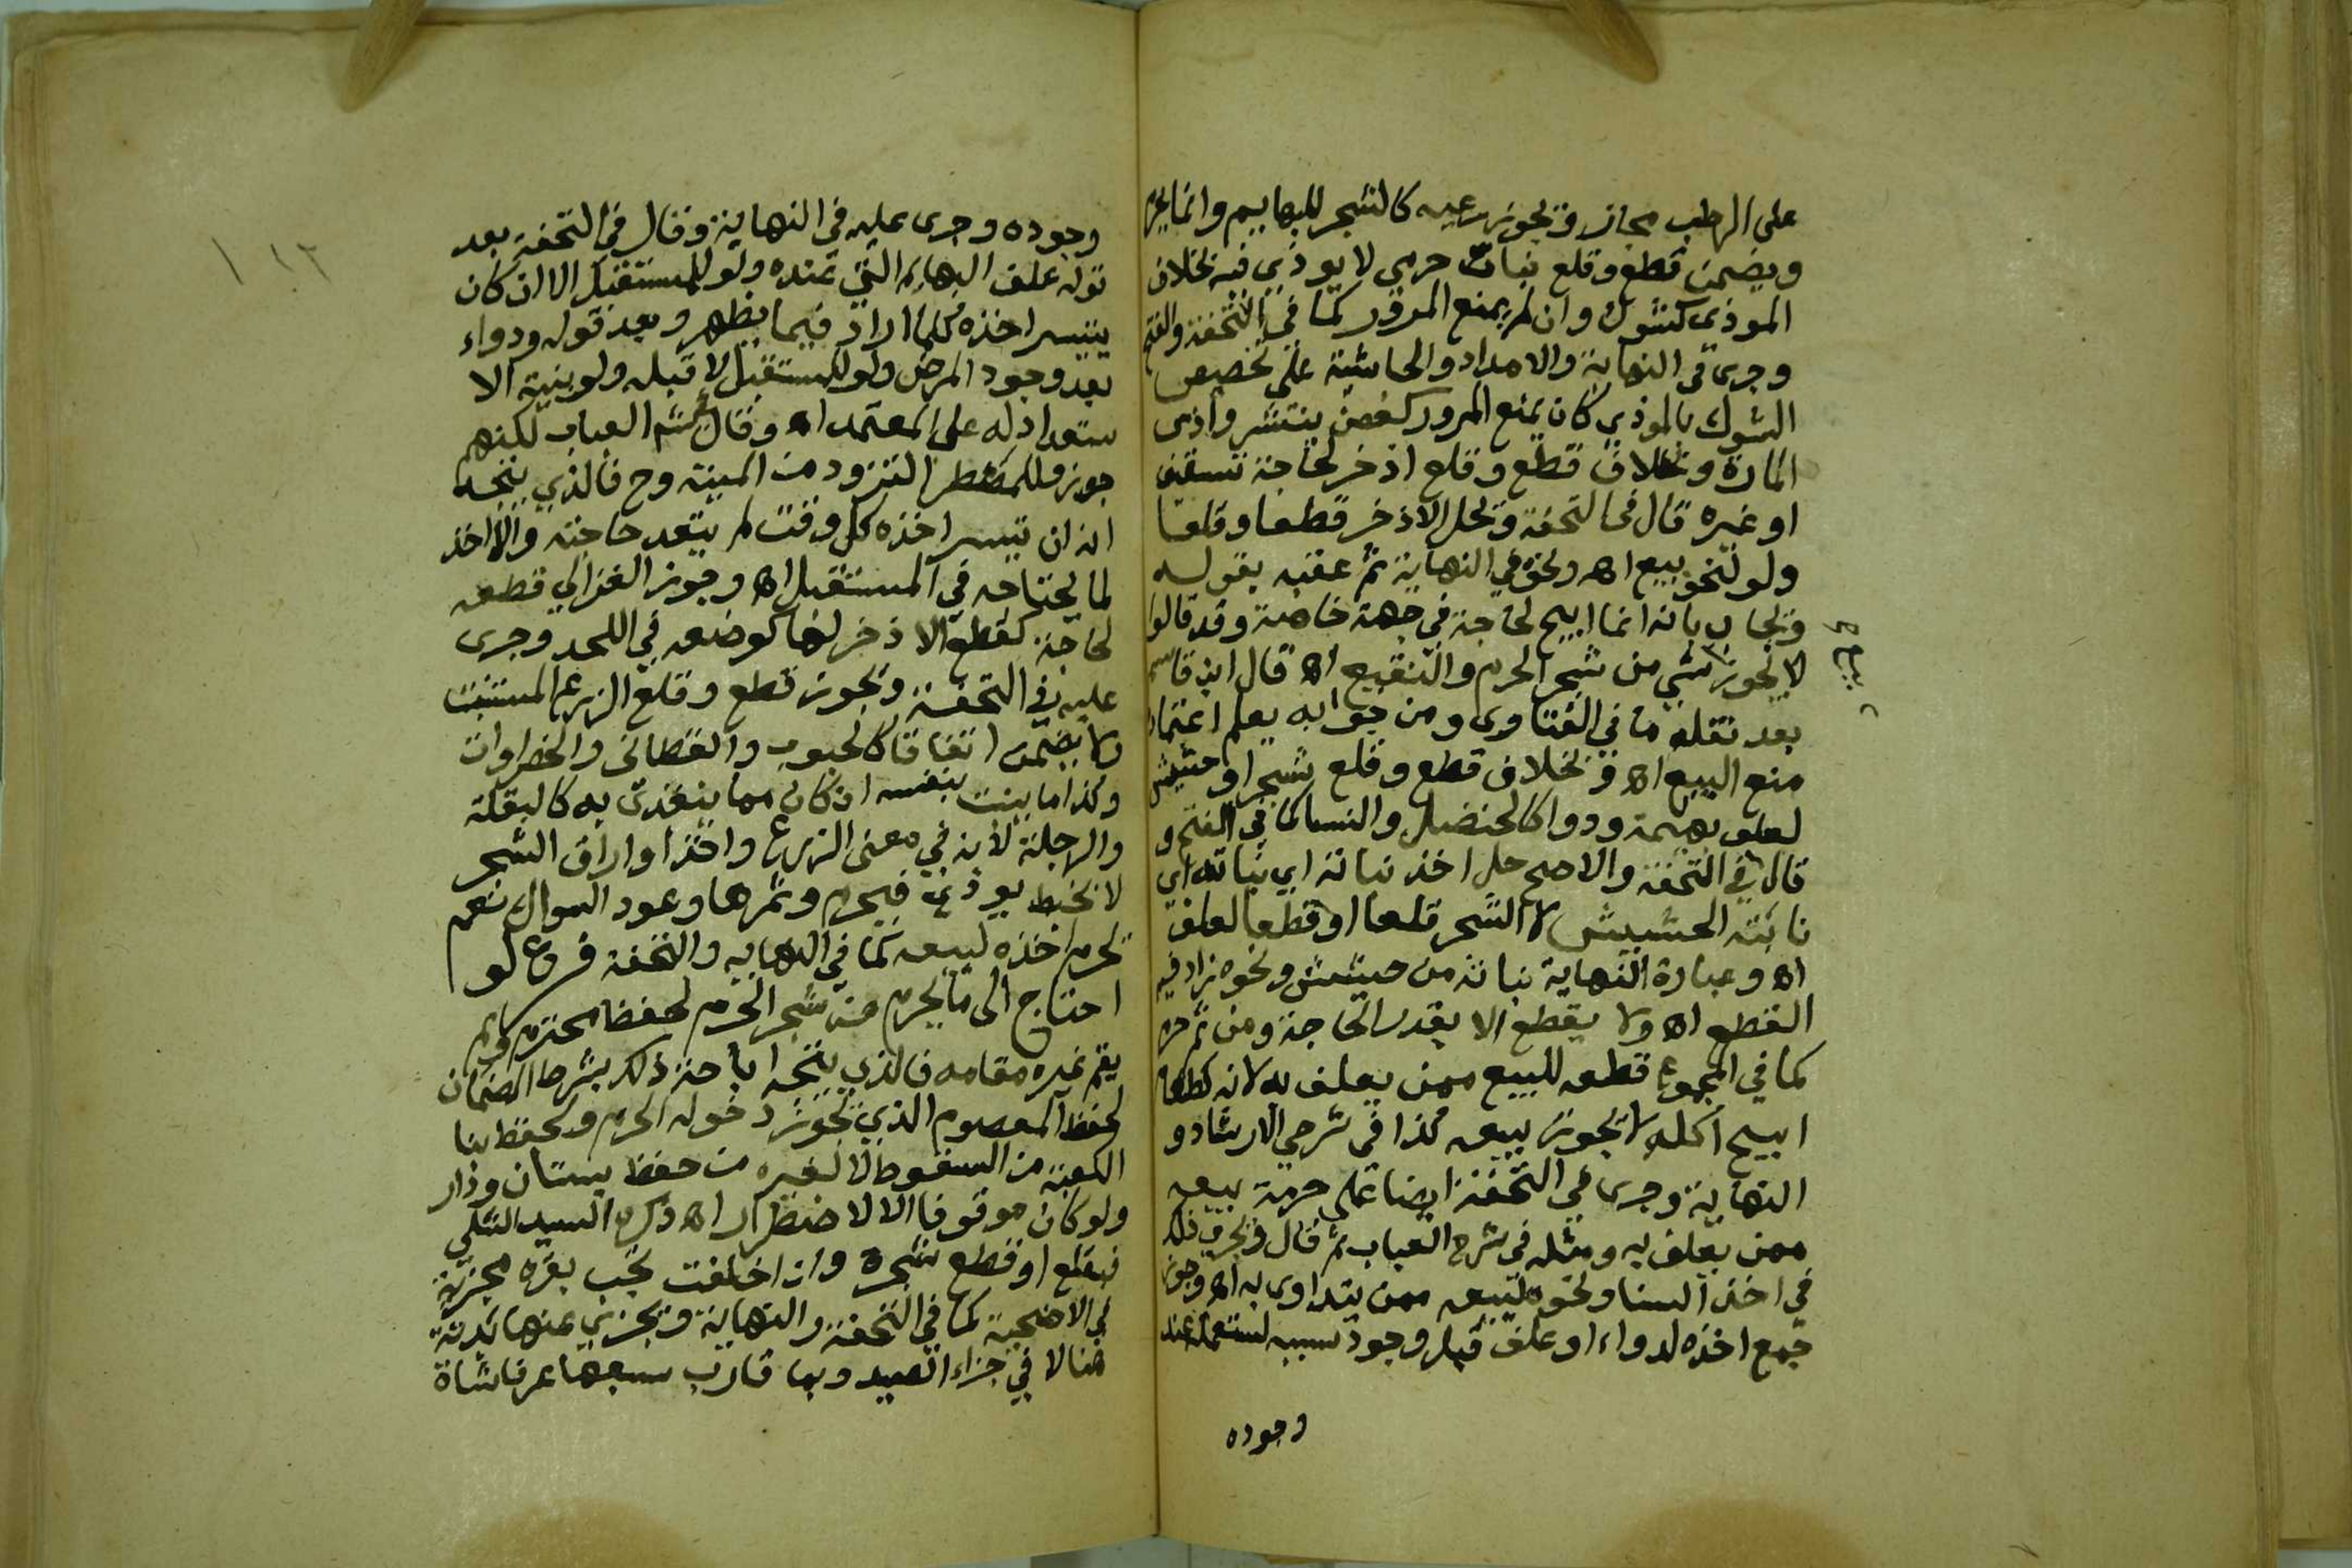 على الرطب مجاز ويجوز رعيه كالشجر للبهايم وانما يحرم
ويضمن قطع وقلع نبات حرمي لا يوذي فيه بخلاف
الموذي كشوك وان لم يمنع المرور كما في التحفة والفتح
وجرى في النهاية والامداد والحاشية على تخصيص
الشوك بالموذي كان يمنع المرور كغصن ينتشر واذى
المارة وبخلاف قطع وقلع اذخر لحاجة تسقيف
او غيره قال في التحفة ويحل الاذخر قطعا وقلعا
ولو لنحو بيع اه ونحوه في النهاية ثم عقبه بقوله
ويجاب بانه انما ابيح لحاجة في جهة خاصة وقد قالوا
لا يجوز شي من شجر الحرم والنقيع اه قال ابن قاسم
بيع صح
بعد نقله ما في الفتاوى ومن جوابه يعلم اعتماد
منع البيع اه وبخلاف قطع وقلع شجر او حشيش
لعلف بهيمة ودوا كالحنضل والسنا كما في الفتح و
قال في التحفة والاصح حل اخذ نباته اي نباته اي
نابته الحشيش لا الشجر قلعا او قطعا لعلف
اه وعبارة النهاية نباته من حشيش ونحوه زاد فيه
القطع اه ولا يقطع الا بقدر الحاجة ومن ثم حرم
كما في المجموع قطعه للبيع ممن يعلف به لانه كطعام
ابيح اكله لا يجوز بيعه كذا في شرحي الارشاد و
النهاية وجرى في التحفة ايضا على حرمة بيعه
ممن يعلف به ومثله في شرح العباب ثم قال ويجري ذلك
في اخذ السنا ونحوه لبيعه ممن يتداوى به اه وجوز
جمع اخذه لدواء او علف قبل وجود سببه ليستعمله عند
وجوده
١٢
وجوده وجرى عليه في النهاية وقال في التحفة بعد
قوله علف البهائم التي عنده ولو للمستقبل الا ان كان
يتيسر اخذه كلما اراد فيما يظهر وبعد قوله ودواء
بعد وجود المرض ولو للمستقبل لا قبله ولو بنية الا
ستعداد له على المعتمد اه وقال في شرح العباب لكنهم
جوزوا للمضطر التزود من الميتة وح فالذي يتجه
انه ان تيسر اخذه كل وقت لم يتعد حاجته والا اخذ
لما يحتاجه في المستقبل اه وجوز الغزالي قطعه
لحاجة كقطع الاذخر لها كوضعه في اللحد وجرى
عليه في التحفة ويجوز قطع وقلع الزرع المستنبت
ولا يضمن اتفاقا كالحبوب والقطاني والخضراوات
وكذا ما ينبت بنفسه ان كان مما يتغذى به كالبقلة
والرجلة لانه في معنى الزرع واخذ اوراق الشجر
لا بخبط يوذي فيحرم وثمرها وعود السواك نعم
يحرم اخذه لبيعه كما في النهاية والتحفة فرع لو
احتاج الى ما يحرم من شجر الحرم لحفظ محترم ولم
يقم غيره مقامه فالذي يتجه اباحة ذلك بشرط الضمان
لحفظ المعصوم الذي يجوز دخوله الحرم ولحفظ بنا
الكعبة من السقوط لا لغيره من حفظ بستان ودار
ولو كان موقوفا الا لاضطرار اه ذكره السيد الشلي
فبقلع او قطع شجرة وان اخلفت تجب بقرة مجزية
في الاضحية كما في التحفة والنهاية ويجزي عنها بدنة
هنا لا في جزاء الصيد وبما قارب سبعها عرفا شاة